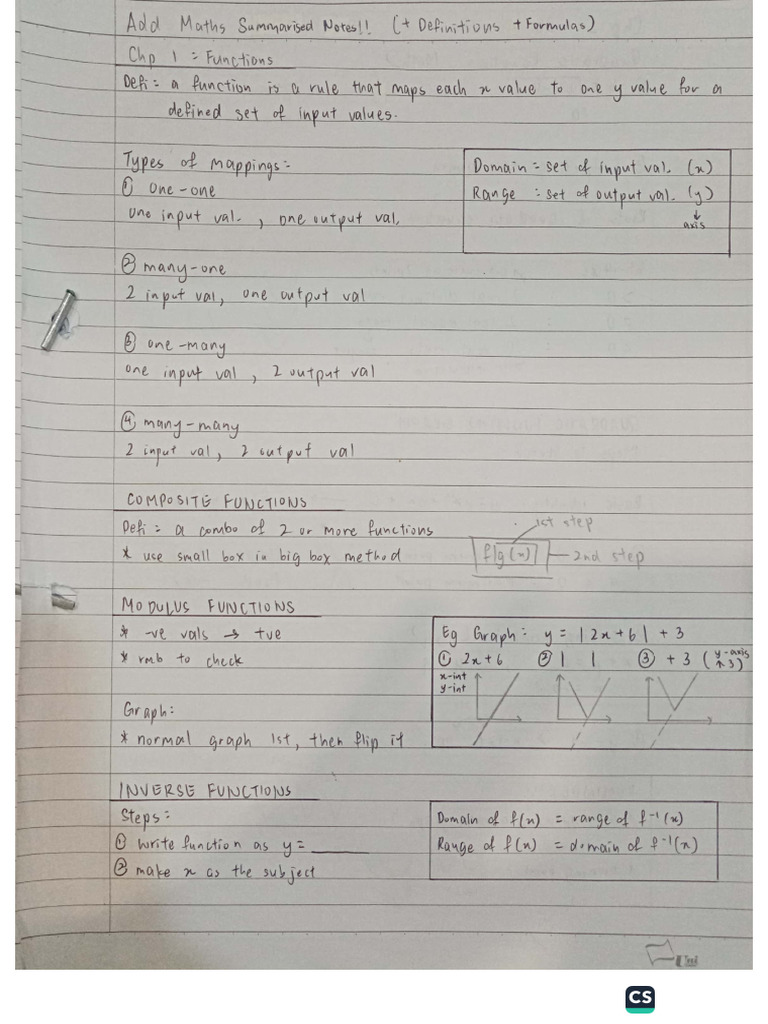 Add Maths Summarised Notes!! (+ Definitions + Formulas)
Chp 1 : Functions
Defi : a function is a rule that maps each x value to one y value for a
defined set of input values.
Types of Mappings :
① one-one
one input val. , one output val.
Domain : set of input val. (x)
Range : set of output val. (y)
↓
axis
② many-one
2 input val, one output val
③ one-many
one input val , 2 output val
④ many-many
2 input val, 2 output val
COMPOSITE FUNCTIONS
Defi : a combo of 2 or more functions
* use small box in big box method
1st step
f[g(x)] — 2nd step
MODULUS FUNCTIONS
* -ve vals → +ve
* rmb to check
Graph :
* normal graph 1st, then flip it
Eg Graph : y = |2x+6| + 3
① 2x+6 ② | | ③ +3 (y-axis ↑3)
x-int
y-int
INVERSE FUNCTIONS
Steps :
① write function as y = ______
② make x as the subject
Domain of f(x) = range of f⁻¹(x)
Range of f(x) = domain of f⁻¹(x)
Uni
CS